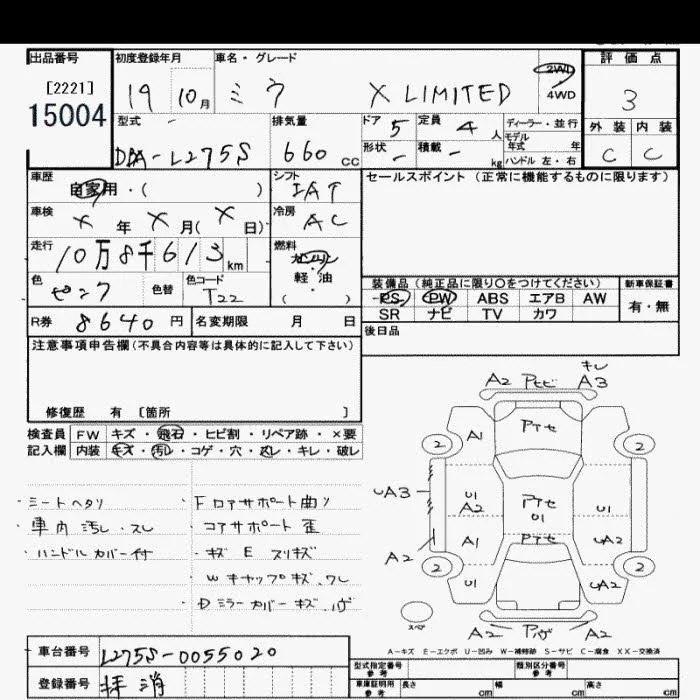 出品番号 初度登録年月 車名・グレード 2WD 評価点
[2221] 19 10月 ミラ X LIMITED 4WD 3
15004 型式 排気量 ドア 5 定員 4 人 ディーラー・並行 外装 内装
DBA-L275S 660 CC 形状 - 積載 - kg モデル年式 年 ハンドル 左・右 C C
車歴 自家用・( ) シフト IAT セールスポイント (正常に機能するものに限ります)
車検 X 年 X 月(X 日) 冷房 AC
走行 10万8千613km 燃料 ガソリン・軽油 ( )
色 ピンク 色替 色コード T22 装備品 (純正品に限り○をつけてください) 新車保証書
PS PW ABS エアB AW 有・無
R券 8640円 名変期限 月 日 SR ナビ TV カワ
注意事項申告欄(不具合内容等は具体的に記入して下さい) 後日品
修復歴 有 〔箇所 〕
検査員 FW キズ・飛石・ヒビ割・リペア跡・×要
記入欄 内装 キズ・汚レ・コゲ・穴・スレ・キレ・破レ
・シートヘタリ
・車内汚レ・スレ
・ハンドルカバー付
・Fロアサポート曲り
・コアサポート歪
・キズ E スリキズ
Wキャップキズ、ワレ
Dミラーカバーキズ・ハゲ
キレ
A2 Pヒビ A3
A1 Pアセ
2 2
UA3 U1 A2 Pアセ U1 U1
A2 A1 Pアセ UA2
2 U1 UA2 2
スペア A2 Pハゲ A2
A-キズ E-エクボ U-凹み W-補修跡 S-サビ C-腐食 XX-交換済
車台番号 L275S-0055020
登録番号 抹消
型式指定番号 参考 類別区分番号 参考
車庫証明用 参考 長さ cm 幅 cm 高さ cm